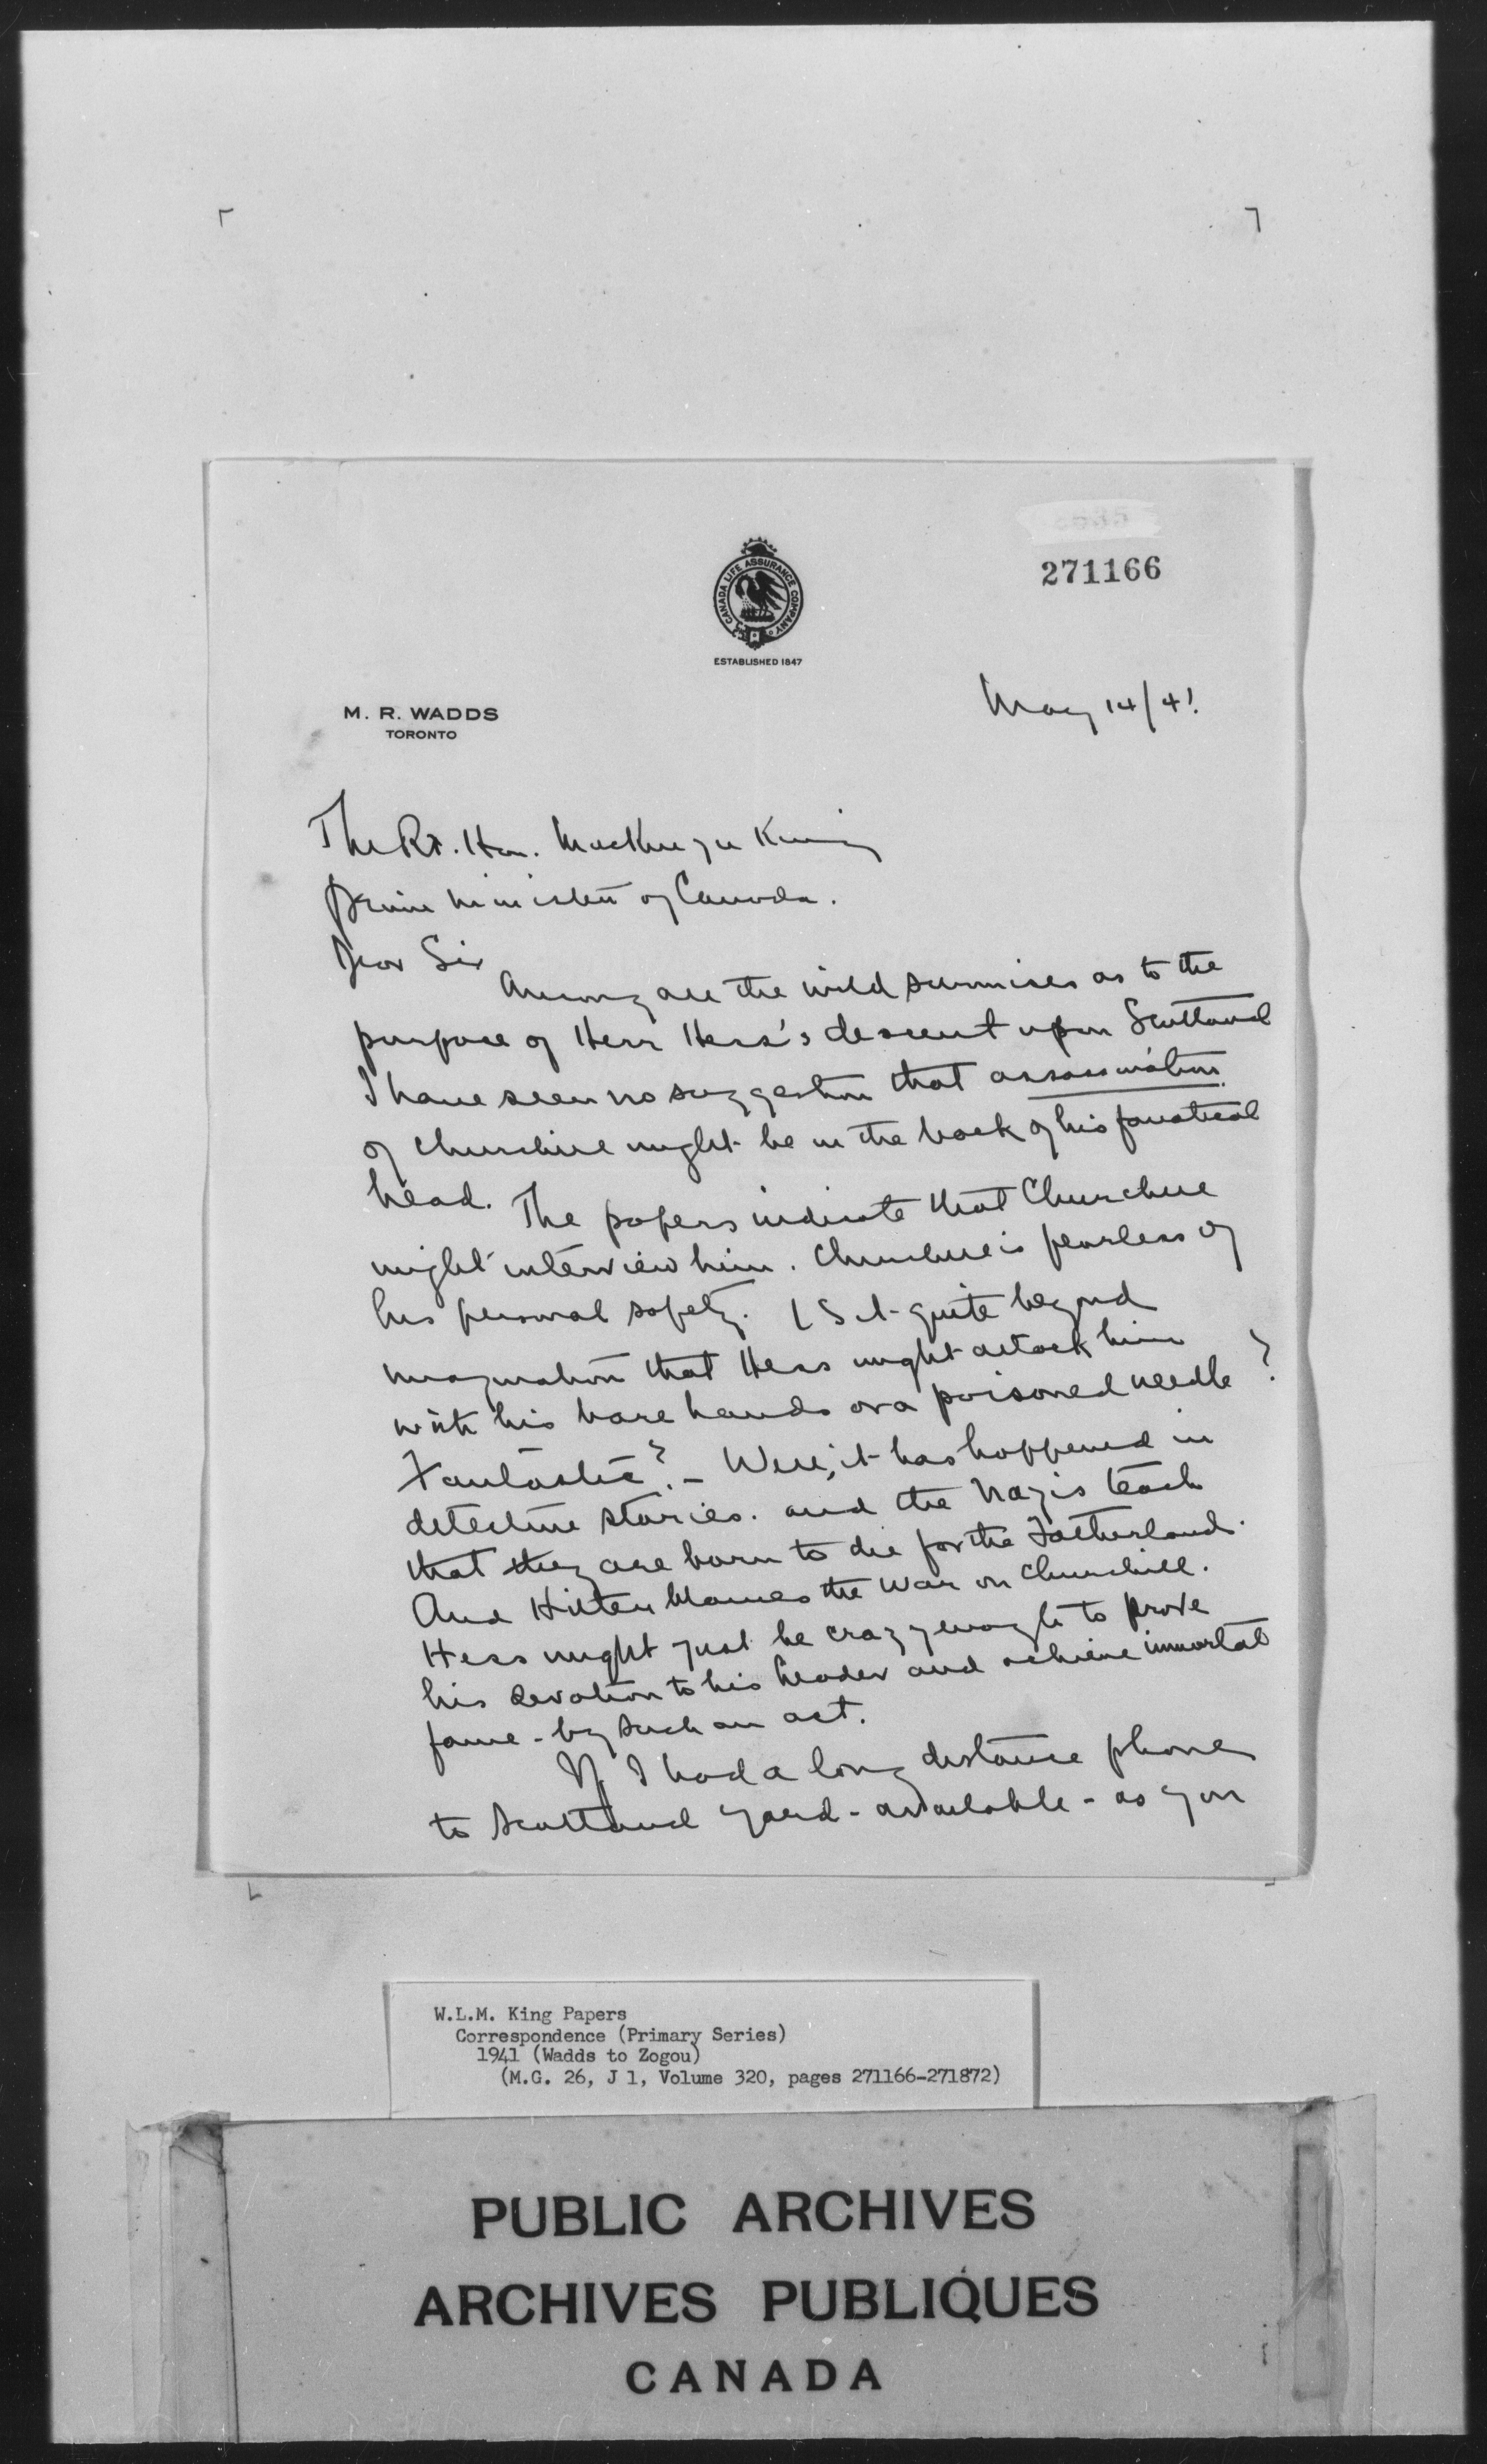 271166
CANADA LIFE ASSURANCE COMPANY
ESTABLISHED 1847
M. R. WADDS
TORONTO
May 14/41.
The Rt. Hon. MacKenzie King
Prime Minister of Canada.
Dear Sir
Among all the wild surmises as to the
purpose of Herr Hess's descent upon Scotland
I have seen no suggestion that assassination
of Churchill might be in the back of his fanatical
head. The papers indicate that Churchill
might interview him. Churchill is fearless of
his personal safety. Is it quite beyond
imagination that Hess might attack him
with his bare hands or a poisoned needle?
Fantastic? - Well, it has happened in
detective stories. and the Nazis teach
that they are born to die for the Fatherland.
And Hitler blames the war on Churchill.
Hess might just be crazy enough to prove
his devotion to his leader and achieve immortal
fame - by such an act.
If I had a long distance phone
to Scotland Yard - available - as you
W.L.M. King Papers
Correspondence (Primary Series)
1941 (Wadds to Zogou)
(M.G. 26, J 1, Volume 320, pages 271166-271872)
PUBLIC ARCHIVES
ARCHIVES PUBLIQUES
CANADA